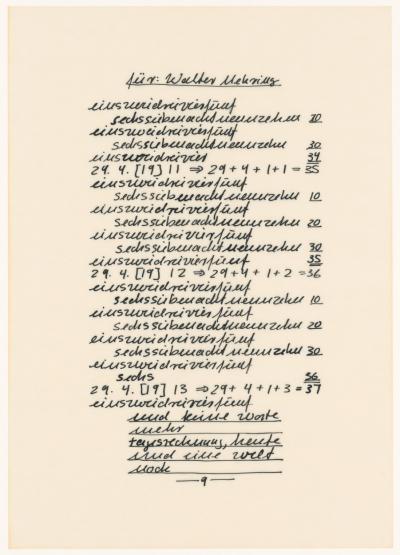 für: Walter Mehring
einszweidreivierfünf
sechssiebenachtneunzehn 20
einszweidreivierfünf
sechssiebenachtneunzehn 30
einszweidreivier 34
29. 4. [19] 11 ⇒ 29 + 4 + 1 + 1 = 35
einszweidreivierfünf
sechssiebenachtneunzehn 10
einszweidreivierfünf
sechssiebenachtneunzehn 20
einszweidreivierfünf
sechssiebenachtneunzehn 30
einszweidreivierfünf 35
29. 4. [19] 12 ⇒ 29 + 4 + 1 + 2 = 36
einszweidreivierfünf
sechssiebenachtneunzehn 10
einszweidreivierfünf
sechssiebenachtneunzehn 20
einszweidreivierfünf
sechssiebenachtneunzehn 30
einszweidreivierfünf
sechs 36
29. 4. [19] 13 ⇒ 29 + 4 + 1 + 3 = 37
einszweidreivierfünf
und keine worte
mehr
tagesrechnung, heute
und eine welt
noch
— 9 —